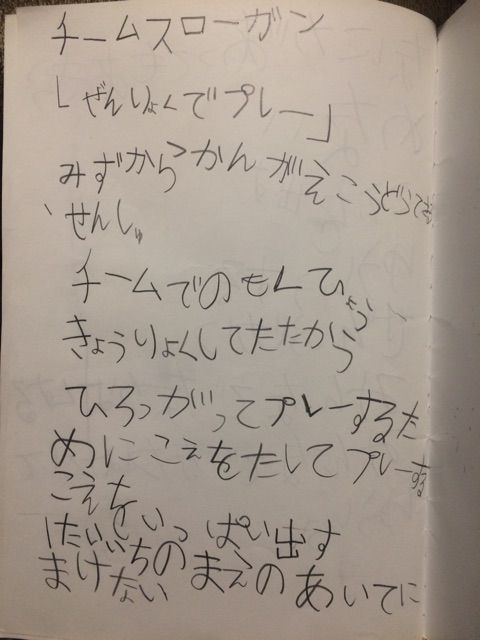 チームスローガン
「ぜんりょくでプレー」
みずからかんがえこうどうでき
せんしゅ
チームでのもくひょう
きょうりょくしてたたかう
ひろっがってプレーするた
めにこえをたしてプレーする
こえを
いっぱい出す
まけない まえの あいてに